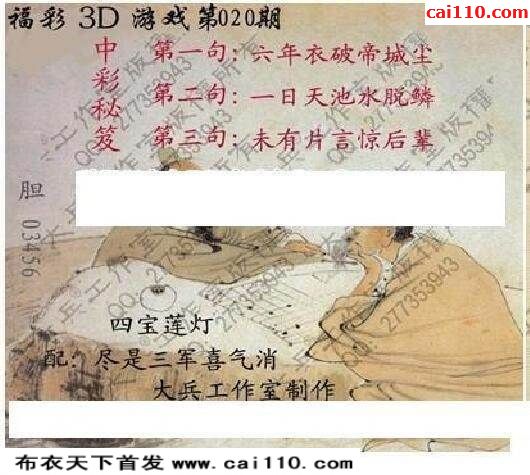 福彩 3D 游戏第020期
cai110.com
中彩秘笈
第一句：六年衣破帝城尘
第二句：一日天池水脱鳞
第三句：未有片言惊后辈
胆 03456
四宝莲灯
配：尽是三军喜气消
大兵工作室制作
大兵工作室版权所有 QQ：277353943
布衣天下首发 www.cai110.com